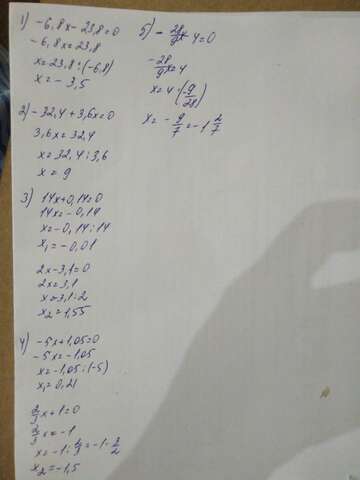 1) -6,8x-23,8=0
-6,8x=23,8
x=23,8:(-6,8)
x=-3,5
2) -32,4+3,6x=0
3,6x=32,4
x=32,4:3,6
x=9
3) 14x+0,14=0
14x=-0,14
x=-0,14:14
x₁=-0,01
2x-3,1=0
2x=3,1
x=3,1:2
x₂=1,55
4) -5x+1,05=0
-5x=-1,05
x=-1,05:(-5)
x₁=0,21
2/3x+1=0
x₂=-1,5
5) -28/9x-4=0
-28/9x=4
x=4·(-9/28)
x=-9/7=-1 2/7